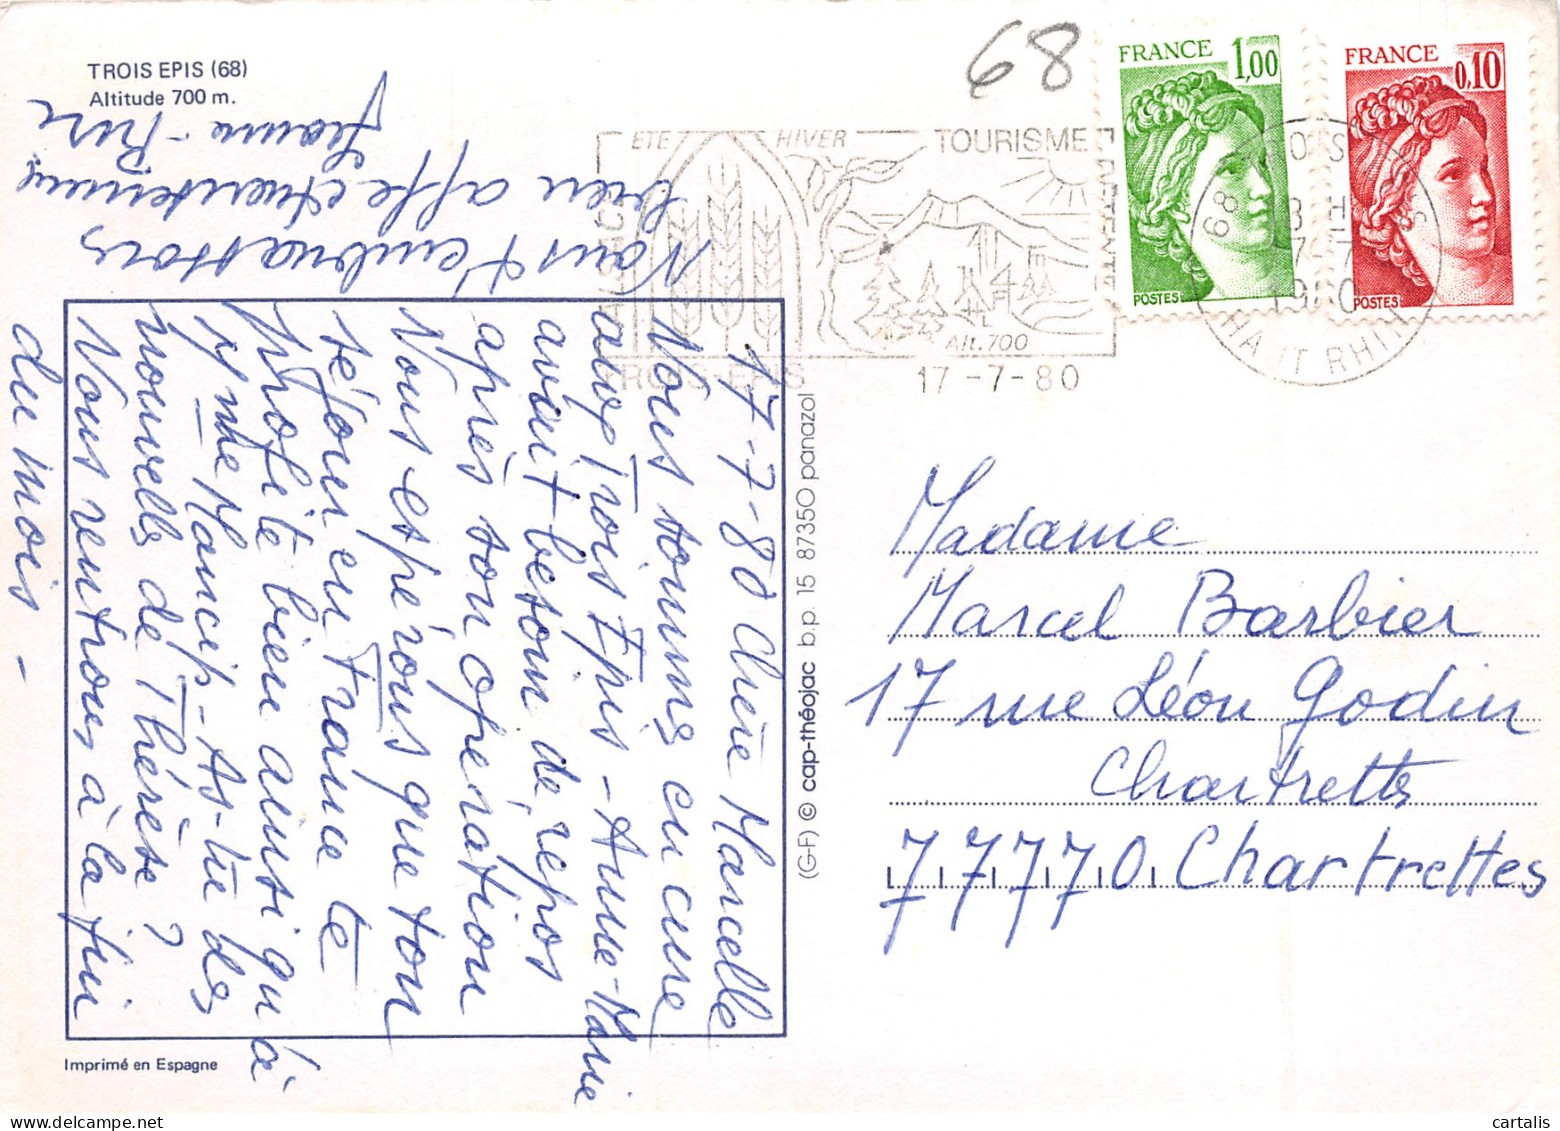 TROIS EPIS (68)
Altitude 700 m.
68
FRANCE 1,00
POSTES
FRANCE 0,10
POSTES
ETE HIVER TOURISME
DETENTE
Alt. 700
TROIS-EPIS
17-7-80
68
HAUT RHIN
17-7-80 Chère Marcelle
Nous sommes en cure
aux Trois Epis - Anne-Marie
avait besoin de repos
après son opération
Nous espérons que ton
séjour en Traine te
profite bien ainsi qu'à
Mme Mancip - As-tu des
nouvelles de Thérèse ?
Nous rentrons à la fin
du mois -
Nous t'embrassons
bien affectueusement
Madame
Marcel Barbier
17 rue Léon Godin
Chartrettes
77770 Chartrettes
(G-F) © cap-théojac b.p. 15 87350 panazol
Imprimé en Espagne
cartalis